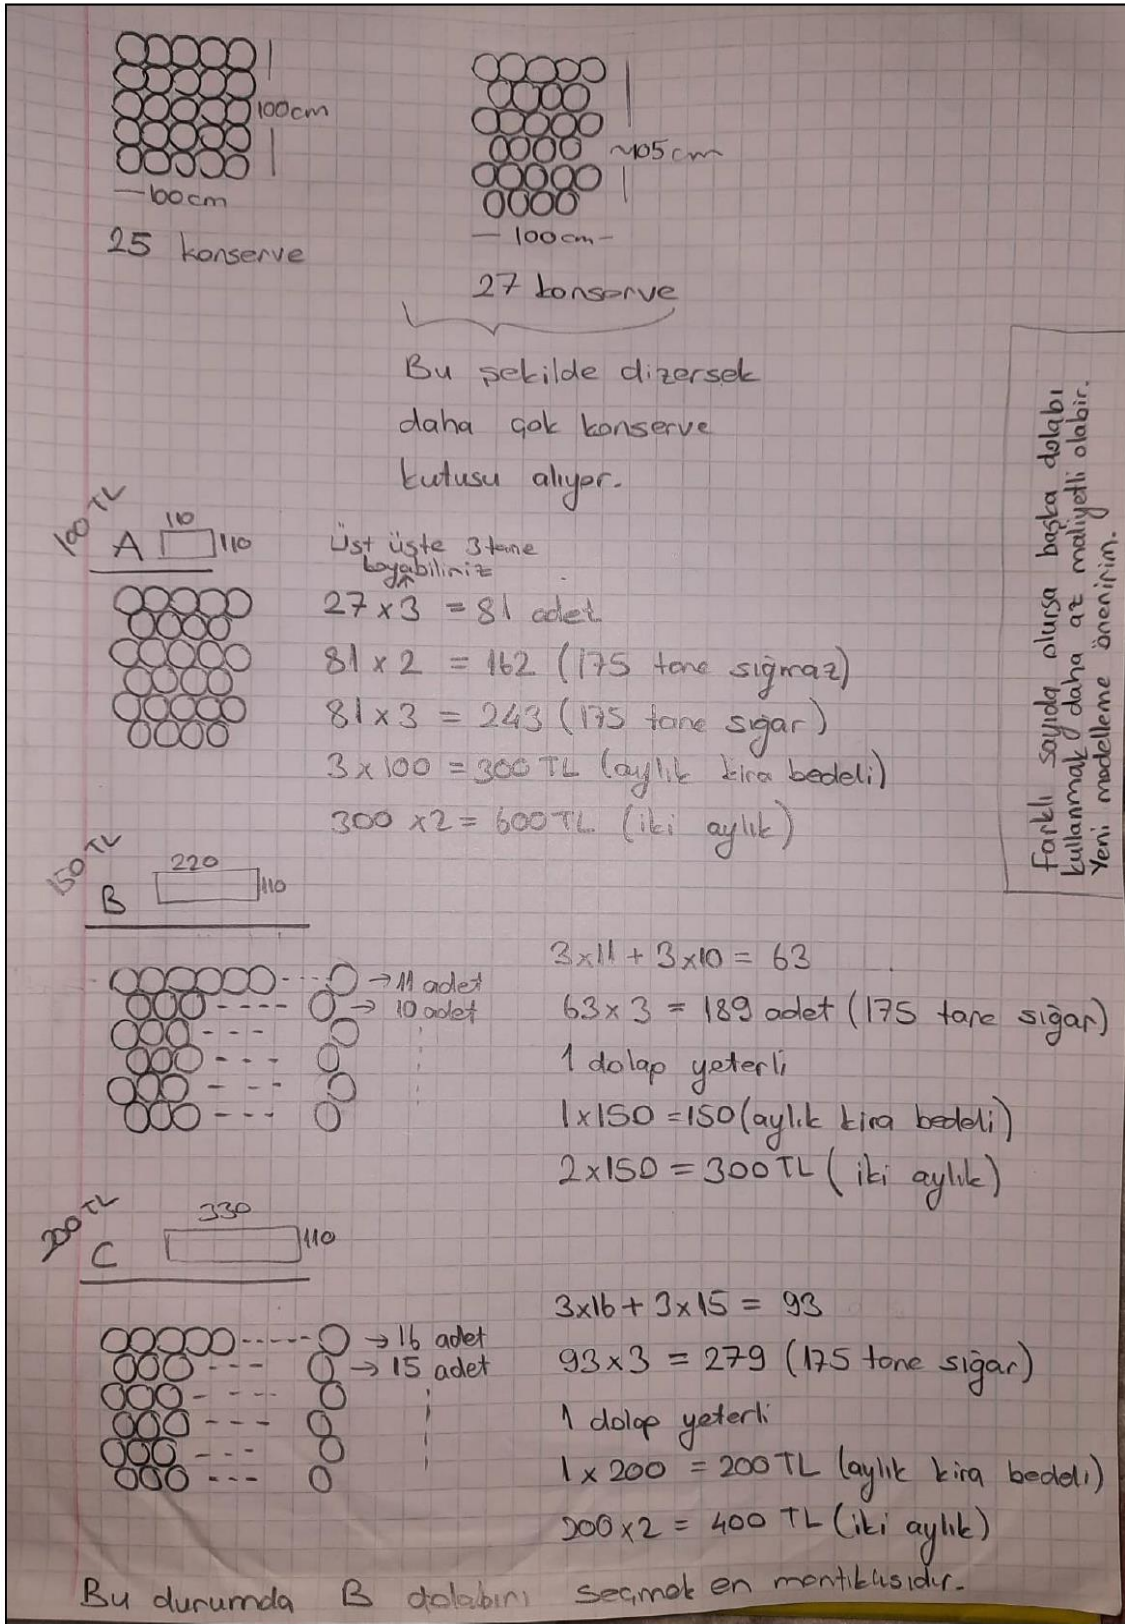 100cm
100cm
25 konserve
~105cm
100cm
27 konserve
Bu şekilde dizersek
daha çok konserve
kutusu alıyor.
Farklı sayıda olursa başka dolabı
kullanmak daha az maliyetli olabilir.
Yeni modelleme öneririm.
100 TL
A 110 110
Üst üste 3 tane
koyabiliriz
27 x 3 = 81 adet
81 x 2 = 162 (175 tane sığmaz)
81 x 3 = 243 (175 tane sığar)
3 x 100 = 300 TL (aylık kira bedeli)
300 x 2 = 600 TL (iki aylık)
150 TL
B 220 110
→ 11 adet
→ 10 adet
3x11 + 3x10 = 63
63 x 3 = 189 adet (175 tane sığar)
1 dolap yeterli
1x150 = 150 (aylık kira bedeli)
2x150 = 300 TL (iki aylık)
200 TL
C 330 110
→ 16 adet
→ 15 adet
3x16 + 3x15 = 93
93 x 3 = 279 (175 tane sığar)
1 dolap yeterli
1 x 200 = 200 TL (aylık kira bedeli)
200 x 2 = 400 TL (iki aylık)
Bu durumda B dolabını seçmek en mantıklısıdır.